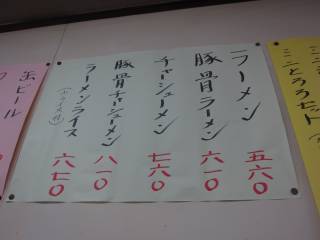 ミニとろろセット
ラーメン 五六〇
豚骨ラーメン 六一〇
チャーシューメン 七六〇
豚骨チャーシューメン 八一〇
ラーメンライス 六七〇
缶ビール